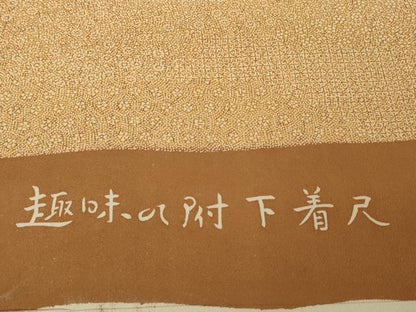 趣味の附下着尺